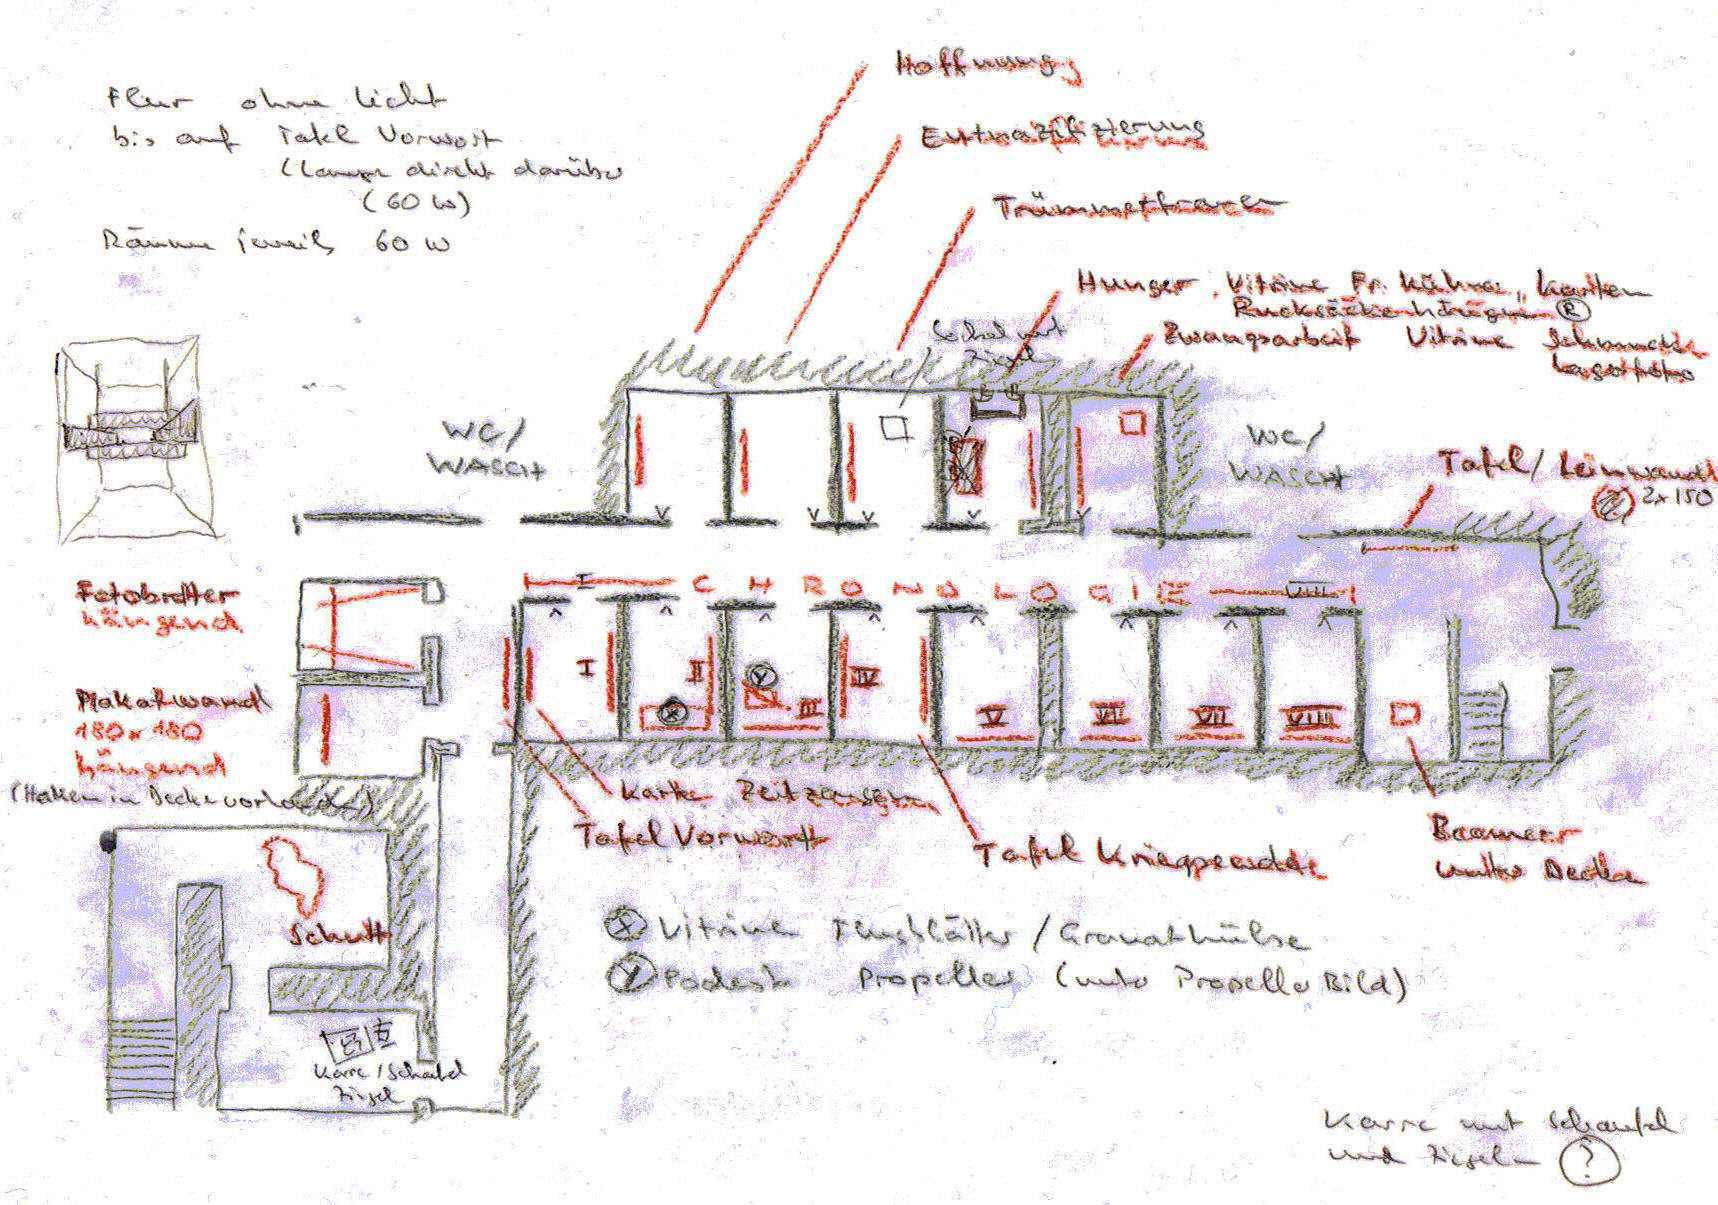 Flur ohne Licht
bis auf Tafel Vorwort
(Lampe direkt darüber
(60 W)
Räume jeweils 60 W
Hoffnung
Entnazifizierung
Trümmerfrauen
Hunger, Vitrine Fr. Kühne, Karten
Rucksäcke hängen R
Zwangsarbeit Vitrine
Lagerfoto
Sockel mit
Ziegel
WC/
WASCH
WC/
WASCH
Tafel/Leinwand
2x150
Fotobretter
hängend
I CHRONOLOGIE VIII
I II III IV V VII VII VIII
X Y
Plakatwand
180 x 180
hängend
(Haken in Decke vorhanden)
Karte Zeitzeugen
Tafel Vorwort
Tafel Kriegsende
Beamer
unter Decke
Schutt
X Vitrine Flugblätter / Granathülse
Y Podest Propeller (unter Propeller Bild)
Karre / Schaufel
Ziegel
Karre mit Schaufel
und Ziegeln ?